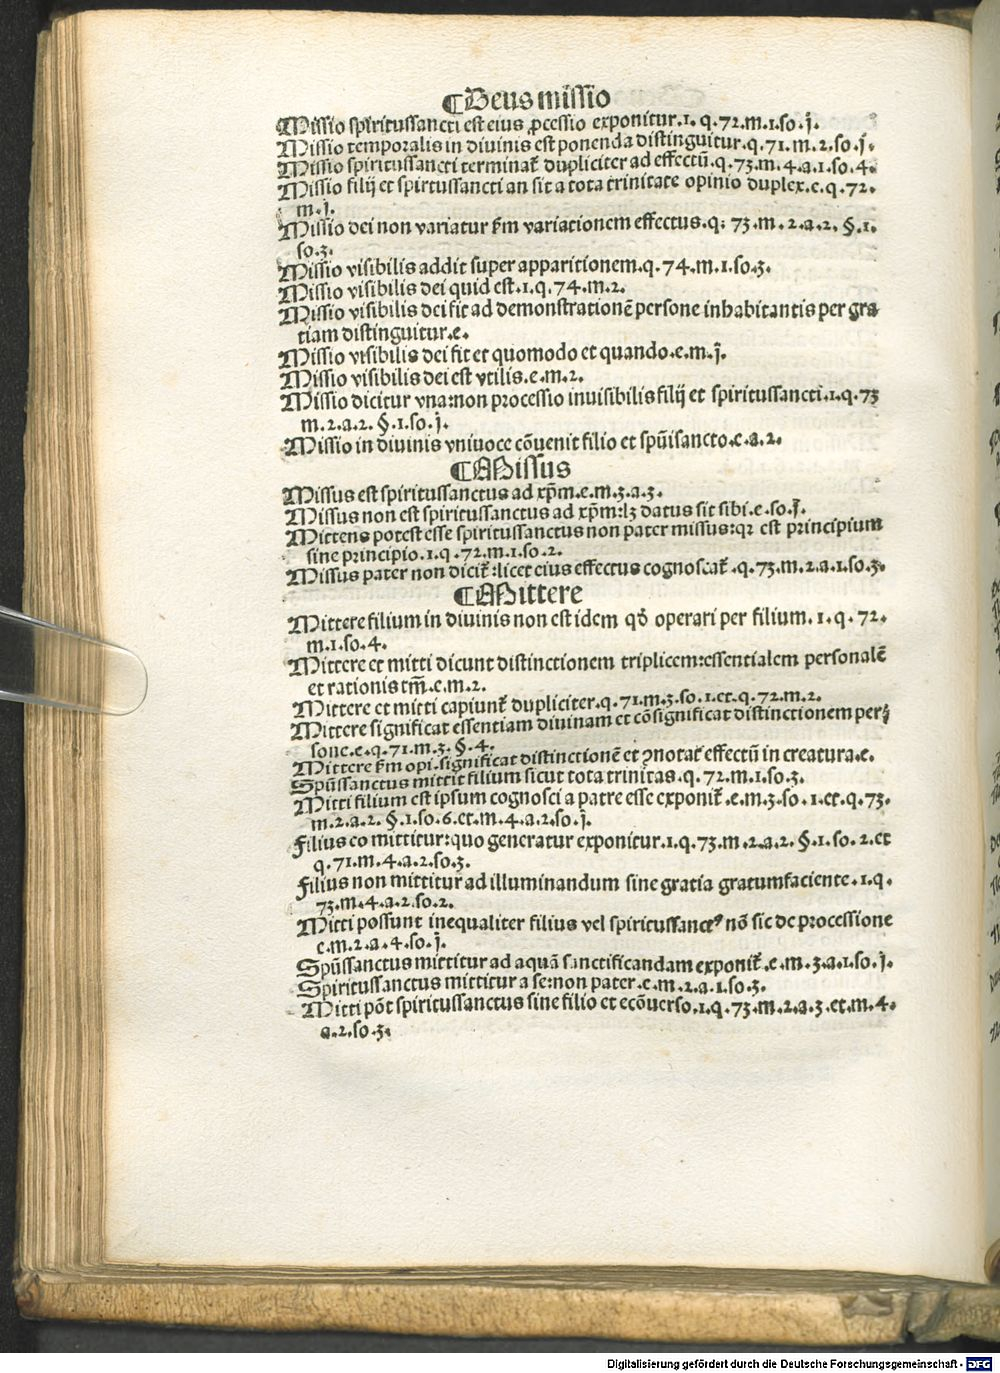 ¶Deus missio
Missio spiritussancti est eius ꝓcessio exponitur.1. q.72.m.1.so.j.
Missio temporalis in diuinis est ponenda distinguitur.q.71.m.2.so.j.
Missio spiritussancti terminat̉ dupliciter ad effectū.q.73.m.4.a.1.so.4.
Missio filij et spirtussancti an sit a tota trinitate opinio duplex.e.q.72.
m.j.
Missio dei non variatur ẜm variationem effectus.q: 73.m.2.a.2. §.1.
so.3.
Missio visibilis addit super apparitionem.q.74.m.1.so.3.
Missio visibilis dei quid est.1.q.74.m.2.
Missio visibilis dei fit ad demonstrationē persone inhabitantis per gra
tiam distinguitur.e.
Missio visibilis dei fit et quomodo et quando.e.m.j.
Missio visibilis dei est vtilis.e.m.2.
Missio dicitur vna:non processio inuisibilis filij et spiritussancti.1.q.73
m.2.a.2. §.1.so.j.
Missio in diuinis vniuoce cōuenit filio et spūisancto.e.a.2.
¶Missus
Missus est spiritussanctus ad xp̄m.e.m.3.a.3.
Missus non est spiritussanctus ad xp̄m:lꝫ datus sit sibi.e.so.j.
Mittens potest esse spiritussanctus non pater missus:qꝛ est principium
sine principio.1.q.72.m.1.so.2.
Missus pater non dicit̉:licet eius effectus cognoscat̉.q.73.m.2.a.1.so.3.
¶Mittere
Mittere filium in diuinis non est idem qđ operari per filium.1.q.72.
m.1.so.4.
Mittere et mitti dicunt distinctionem triplicem:essentialem personalē
et rationis tm̄.e.m.2.
Mittere et mitti capiunt̉ dupliciter.q.71.m.3.so.1.et.q.72.m.2.
Mittere significat essentiam diuinam et cōsignificat distinctionem per
sone.e.q.71.m.3. §.4.
Mittere ẜm opi.significat distinctionē et ꝯnotat̉ effectū in creatura.e.
Spūssanctus mittit filium sicut tota trinitas.q.72.m.1.so.3.
Mitti filium est ipsum cognosci a patre esse exponit̉.e.m.3.so.1.et.q.73.
m.2.a.2. §.1.so.6.et.m.4.a.2.so.j.
Filius eo mittitur:quo generatur exponitur.1.q.73.m.2.a.2. §.1.so.2.et
q.71.m.4.a.2.so.3.
Filius non mittitur ad illuminandum sine gratia gratumfaciente.1.q.
73.m.4.a.2.so.2.
Mitti possunt inequaliter filius vel spiritussanctꝰ nō sic de processione
e.m.2.a.4.so.j.
Spūssanctus mittitur ad aquā sanctificandam exponit̉.e.m.3.a.1.so.j.
Spiritussanctus mittitur a se:non pater.e.m.2.a.1.so.3.
Mitti pōt spiritussanctus sine filio et ecōuerso.1.q.73.m.2.a.3.et.m.4.
a.2.so.3.
Digitalisierung gefördert durch die Deutsche Forschungsgemeinschaft - DFG